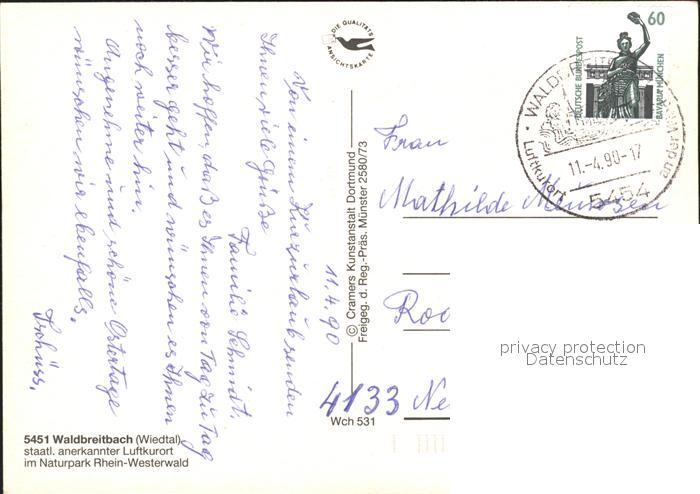 11.4.90
Von einem Kurzurlaub senden
Ihnen viele Grüße
Familie Schmidt.
Wir hoffen, daß es Ihnen von Tag zu Tag
besser geht und wünschen es Ihnen
noch weiter hin.
Angenehme und schöne Ostertage
wünschen wir ebenfalls.
Tschüss.
DIE QUALITÄTS
ANSICHTSKARTE
© Cramers Kunstanstalt Dortmund
Freigeg. d. Reg.-Präs. Münster 2580/73
60
DEUTSCHE BUNDESPOST
BAVARIA MÜNCHEN
WALDBREITB
11.-4.90-17
5454
Luftkurort
an der Wied
Frau
Mathilde
4133 Ne
privacy protection
Datenschutz
Wch 531
5451 Waldbreitbach (Wiedtal)
staatl. anerkannter Luftkurort
im Naturpark Rhein-Westerwald